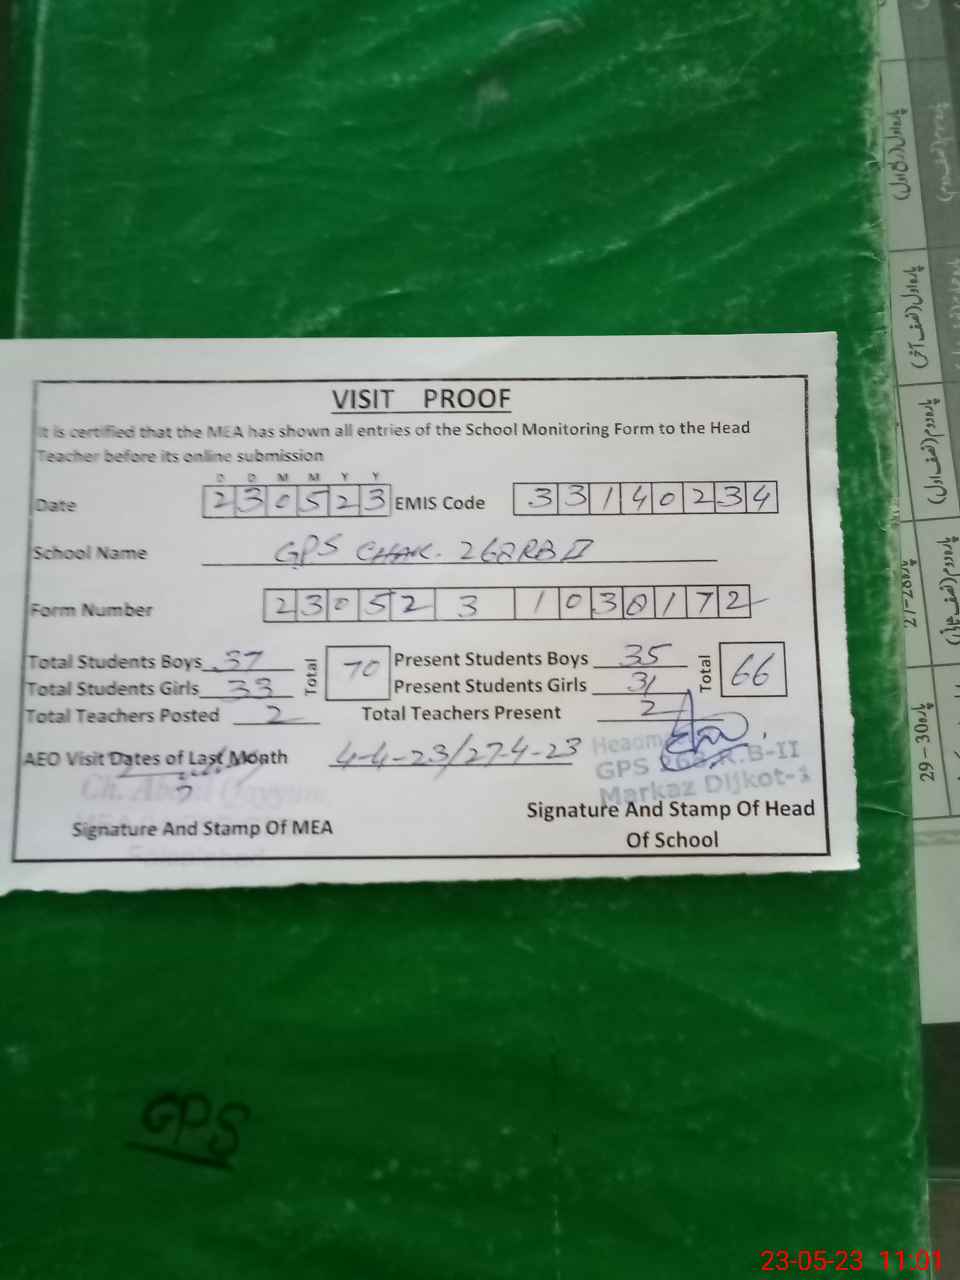 VISIT PROOF
It is certified that the MEA has shown all entries of the School Monitoring Form to the Head
Teacher before its online submission
D D M M Y Y
Date 230523 EMIS Code 33140234
School Name GPS CHAK. 268RB II
Form Number 230523 1030172
Total Students Boys 37 Total 70 Present Students Boys 35 Total 66
Total Students Girls 33 Present Students Girls 31
Total Teachers Posted 2 Total Teachers Present 2
AEO Visit Dates of Last Month 4-4-23/27-4-23
GPS 268 R.B-II
Markaz Dijkot-1
Signature And Stamp Of MEA
Signature And Stamp Of Head
Of School
GPS
29-30
23-05-23 11:01